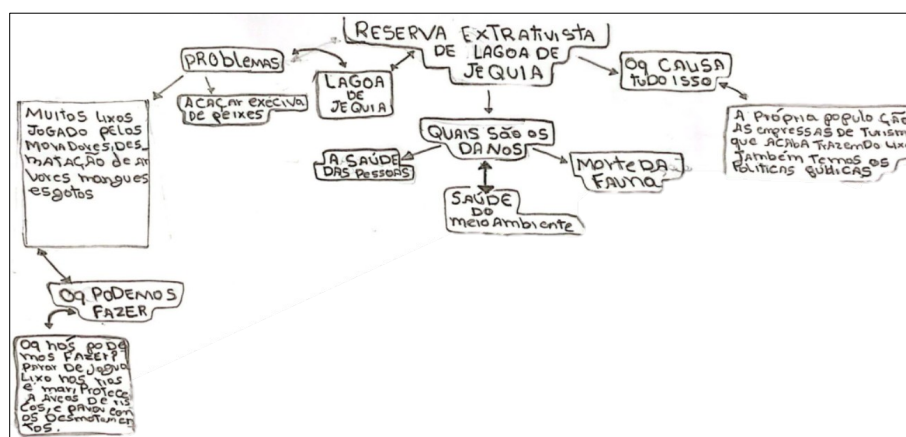 RESERVA EXTRATIVISTA
DE LAGOA DE
JEQUIA
PROBLEMAS
LAGOA
DE
JEQUIA
Oq CAUSA
TUDO ISSO
ACAÇAR EXECIVA
DE PEIXES
Muitos Lixos
JOGADO PELOS
MORADORES, DES-
MATAÇÃO de ár
vores mangues
esgotos
QUAIS SÃO OS
DANOS
A SAÚDE
DAS PESSOAS
MORTE DA
FAUNA
SAÚDE
DO
meio Ambiente
A Própria população
AS empressas DE Turismo
que ACABA TRAZENDO Lixo
Também Temos os
Políticas Públicas
Oq PODEMOS
FAZER
Oq nós pode
mos FAZER?
Parar De
Lixo nos rios
e mar, Protece
A De ris
cos, e parar com
os Desmatamen
tos.